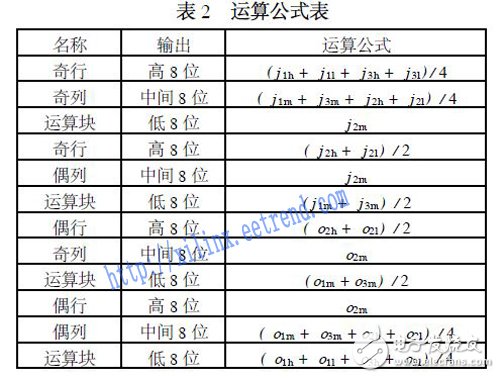 表 2 运算公式表
名称 输出 运算公式
奇行 高 8 位 (j1h + j1l + j3h + j3l)/4
奇列 中间 8 位 (j1m + j3m + j2h + j2l)/4
运算块 低 8 位 j2m
奇行 高 8 位 (j2h + j2l)/2
偶列 中间 8 位 j2m
运算块 低 8 位 (j1m + j3m)/2
偶行 高 8 位 (o2h + o2l)/2
奇列 中间 8 位 o2m
运算块 低 8 位 (o1m + o3m)/2
偶行 高 8 位 o2m
偶列 中间 8 位 (o1m + o3m + + o2l)/4
运算块 低 8 位 (o1h + o1l + + o3l)/4
http://xilinx.eetrend.com
电子发烧友